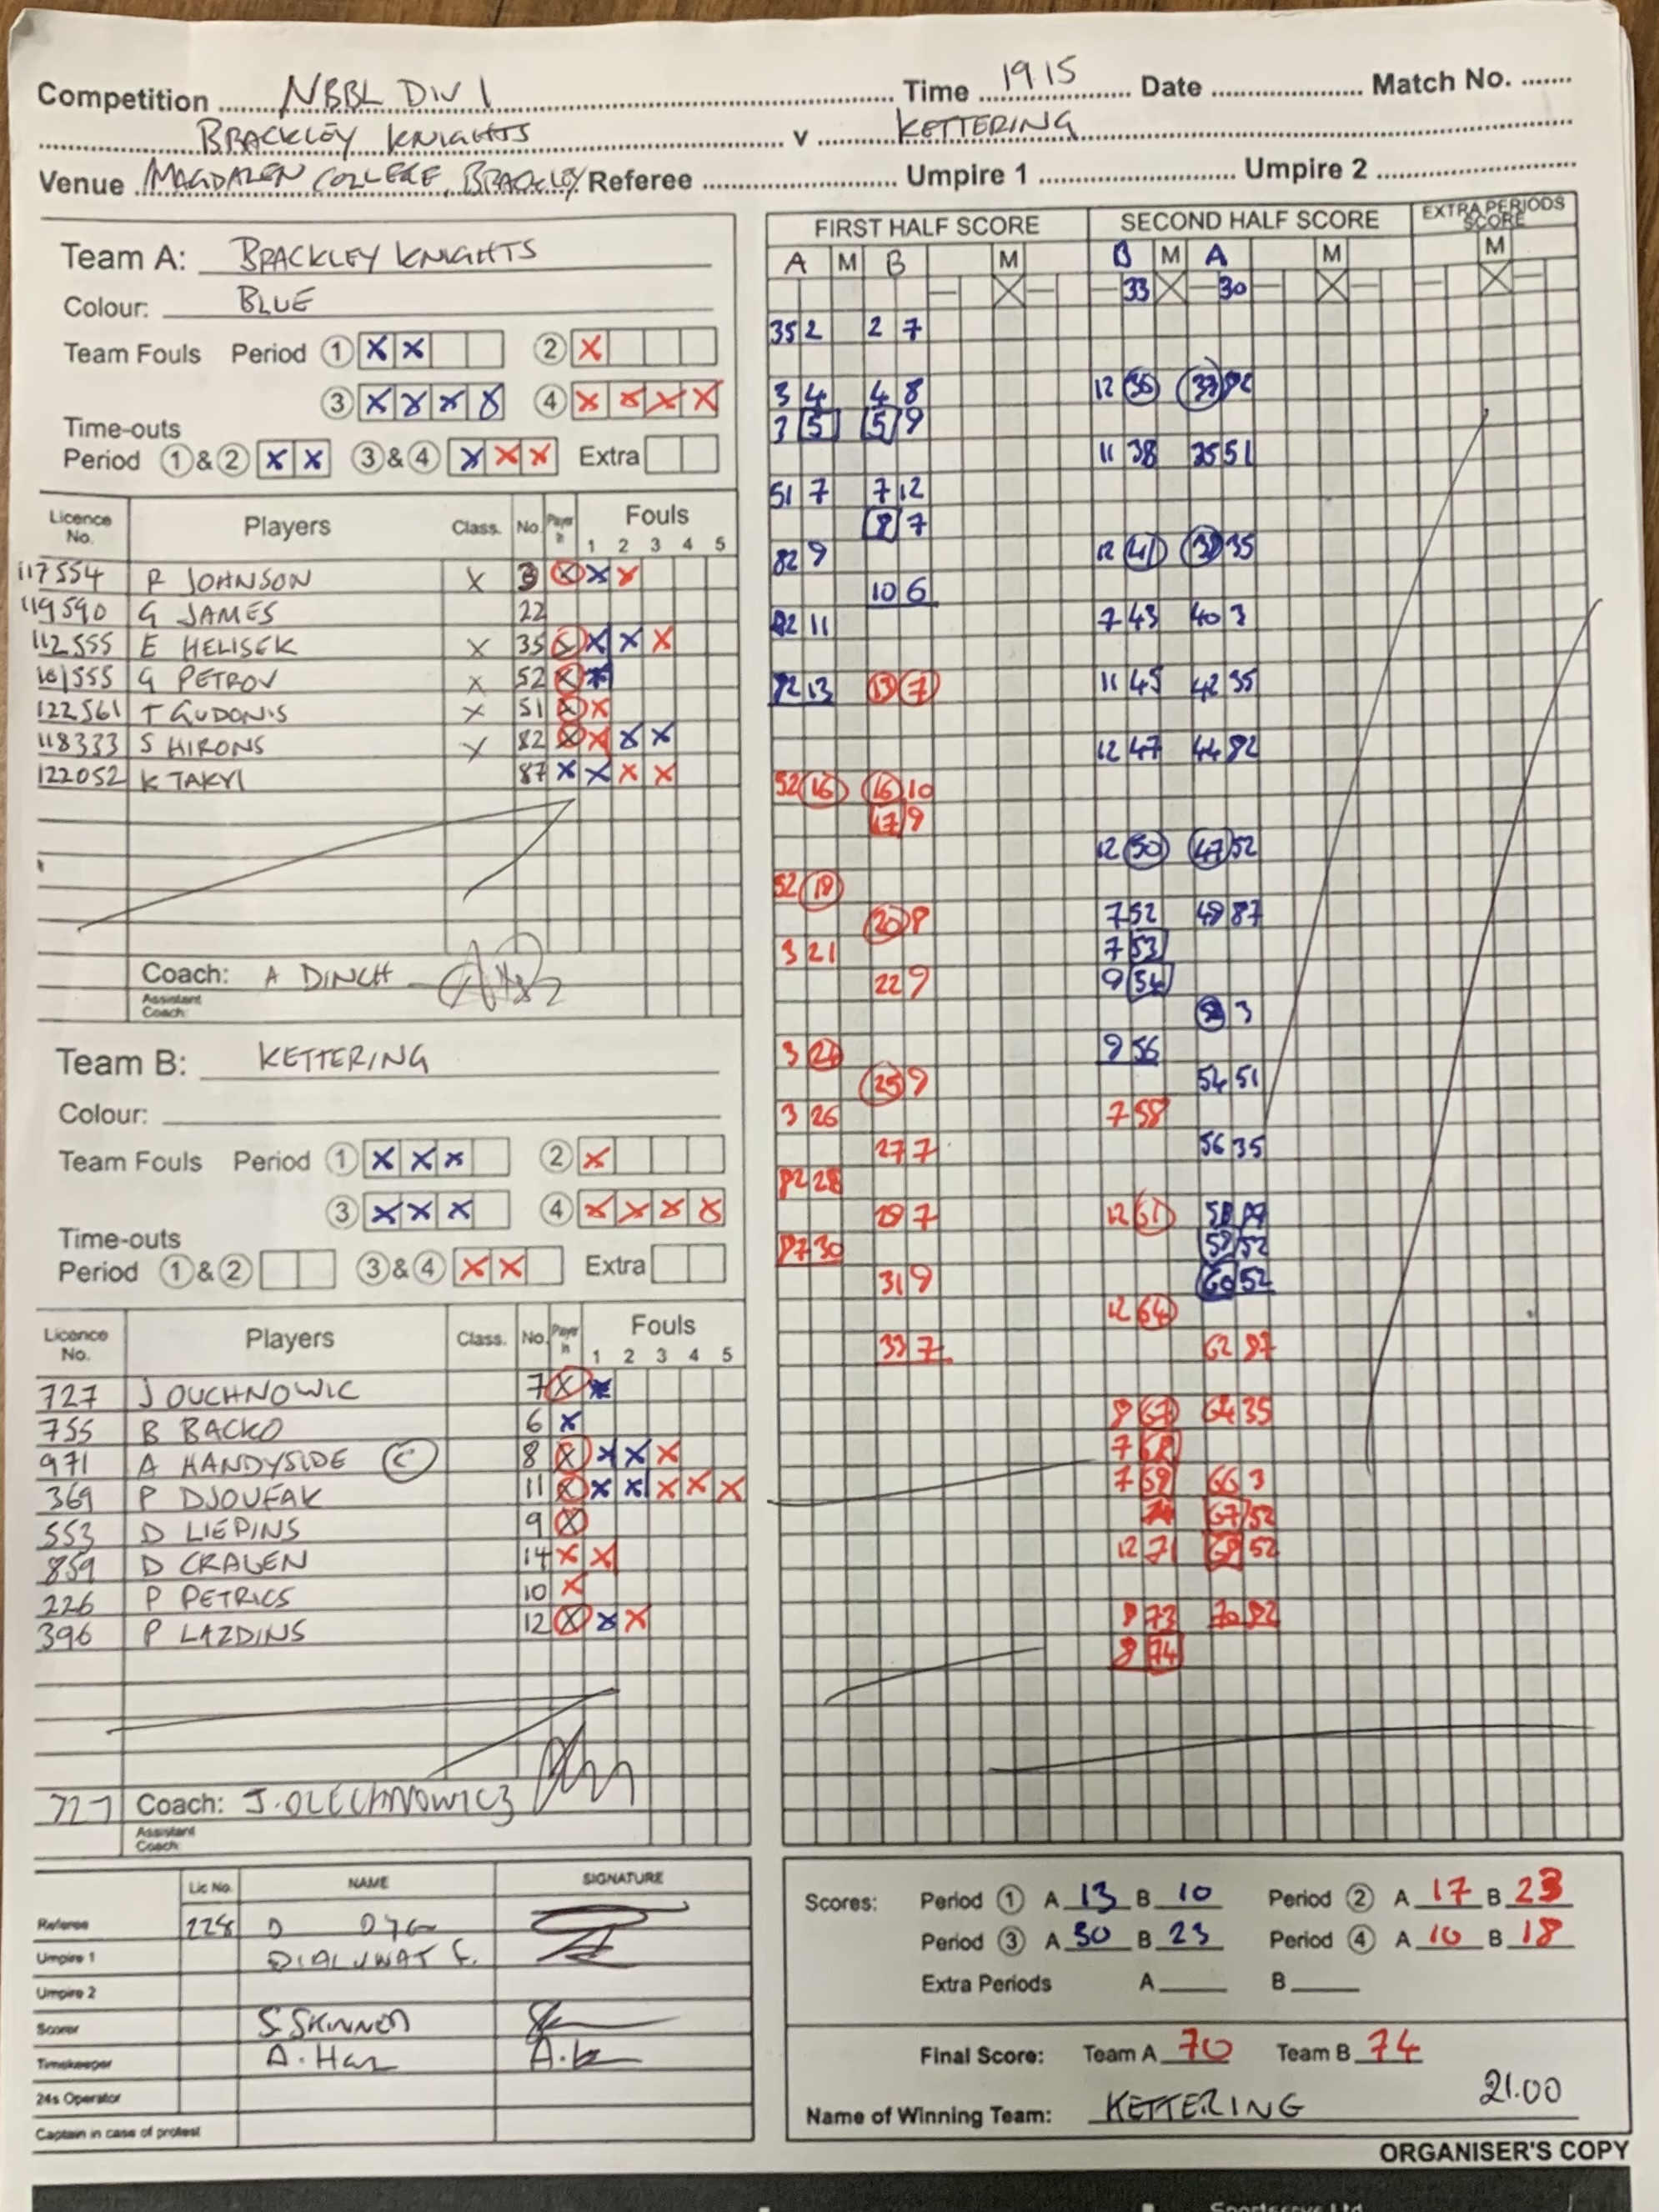 Competition NBBL DIV 1 Time 19.15 Date Match No.
BRACKLEY KNIGHTS v KETTERING
Venue MAGDALEN COLLEGE, BRACKLEY Referee Umpire 1 Umpire 2
Team A: BRACKLEY KNIGHTS
Colour: BLUE
Team Fouls Period 1 X X 2 X
3 X X X X 4 X X X X
Time-outs
Period 1 & 2 X X 3 & 4 X X X Extra
Licence No. Players Class. No. Player in Fouls
1 2 3 4 5
117554 R JOHNSON X 3 X X X
119590 G JAMES 22
112555 E HELISEK X 35 X X X X
101555 G PETROV X 52 X X
122561 T GUDONIS X 51 X X
118333 S HIRONS X 82 X X X X
122052 K TAKYI 87 X X X X
Coach: A DINCH
Assistant Coach:
Team B: KETTERING
Colour:
Team Fouls Period 1 X X X 2 X
3 X X X 4 X X X X
Time-outs
Period 1 & 2 3 & 4 X X Extra
Licence No. Players Class. No. Player in Fouls
1 2 3 4 5
727 J OUCHNOWIC 7 X X
755 B BACKO 6 X
971 A HANDYSIDE C 8 X X X X
369 P DJOUFAK 11 X X X X X X
553 D LIEPINS 9 X
859 D CRAVEN 14 X X
226 P PETRICS 10 X
396 P LAZDINS 12 X X X
727 Coach: J. OLECHNOWICZ
Assistant Coach:
Lic No. NAME SIGNATURE
Referee 1228 D
Umpire 1
Umpire 2
Scorer S. SKINNER
Timekeeper
24s Operator
Captain in case of protest
FIRST HALF SCORE SECOND HALF SCORE EXTRA PERIODS SCORE
A M B M B M A M M
33 30
35 2 2 7
3 4 4 8 12 36 33 82
3 5 5 9
11 38 35 51
51 7 7 12
8 7
82 9 12 41 38 35
10 6
82 11 7 43 40 3
82 13 13 7 11 45 42 35
12 47 44 82
52 16 16 10
17 9
12 50 47 52
52 19
20 8 7 52 49 87
3 21 7 53
22 9 9 54
52 3
3 24 9 56
25 9 54 51
3 26 7 58
27 7 56 35
82 28
29 7 12 61 58
87 30 59 52
31 9 60 52
12 64
33 7 62 87
8 67 64 35
7 68
7 69 66 3
67 52
12 71 68 52
8 73 70 82
8 74
Scores: Period 1 A 13 B 10 Period 2 A 17 B 23
Period 3 A 30 B 23 Period 4 A 10 B 18
Extra Periods A B
Final Score: Team A 70 Team B 74
21.00
Name of Winning Team: KETTERING
ORGANISER'S COPY